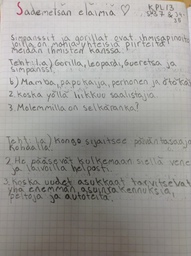 Sademetsän eläimiä ♡
KPL 13
s. 67 & 34-35
Simpanssit ja gorillat ovat ihmisapinoita
joilla on monia yhteisiä piirteitä
meidän ihmisten kanssa.
Teht. 1a) Gorilla, leopardi, guereza ja
simpanssi.
b) Mamba, papukaija, perhonen ja
2. Koska yöllä liikkuu saalistajia
3. Molemmilla on selkäranka!
Teht. 1a) Kongo sijaitsee päiväntasaajan
kohdalla.
2. He pääsevät kulkemaan siellä vene
ja laivoilla helposti.
3. Koska uudet asukkaat tarvitsevat
yhä enemmän asuinrakennuksia,
peltoja ja autoteitä.